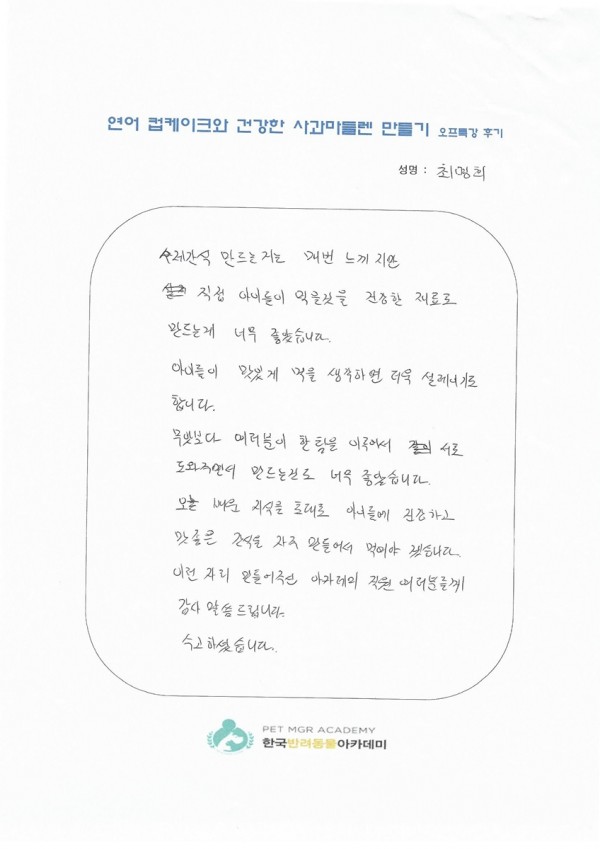 연어 컵케이크와 건강한 사과마들렌 만들기 오프특강 후기
성명 : 최명희
수제간식 만드는거는 매번 느끼지만
직접 아이들이 먹을것을 건강한 재료로
만드는게 너무 좋았습니다.
아이들이 맛있게 먹을 생각하면 더욱 설레이기도
합니다.
무엇보다 여러분이 한 팀을 이루어서 서로
도와주면서 만드는것도 너무 좋았습니다.
오늘 배운 지식을 토대로 아이들에 건강하고
맛좋은 간식을 자주 만들어서 먹여야 겠습니다.
이런 자리 만들어주신 아카데미 직원 여러분들께
감사 말씀 드립니다.
수고하셨습니다.
PET MGR ACADEMY
한국반려동물아카데미